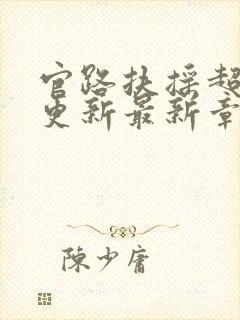 官路扶摇超
更新最新章
陳少庸